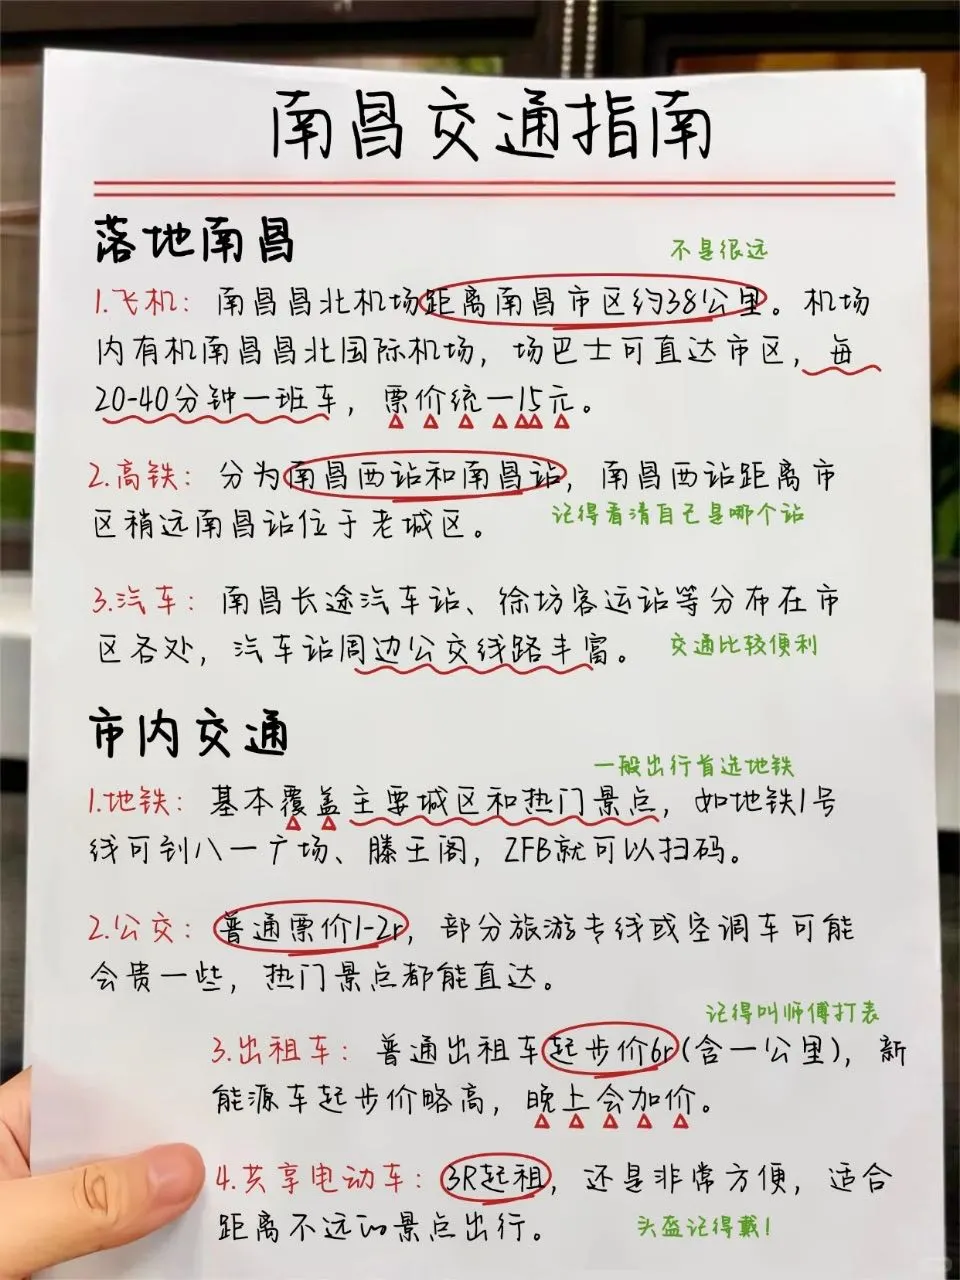 南昌交通指南
落地南昌
不是很远
1.飞机：南昌昌北机场距离南昌市区约38公里。机场
内有机南昌昌北国际机场，场巴士可直达市区，每
20-40分钟一班车，票价统一15元。
2.高铁：分为南昌西站和南昌站，南昌西站距离市
区稍远南昌站位于老城区。
记得看清自己是哪个站
3.汽车：南昌长途汽车站、徐坊客运站等分布在市
区各处，汽车站周边公交线路丰富。
交通比较便利
市内交通
一般出行首选地铁
1.地铁：基本覆盖主要城区和热门景点，如地铁1号
线可到八一广场、滕王阁，ZFB就可以扫码。
2.公交：普通票价1-2r，部分旅游专线或空调车可能
会贵一些，热门景点都能直达。
记得叫师傅打表
3.出租车：普通出租车起步价6r(含一公里)，新
能源车起步价略高，晚上会加价。
4.共享电动车：3R起租，还是非常方便，适合
距离不远的景点出行。
头盔记得戴！